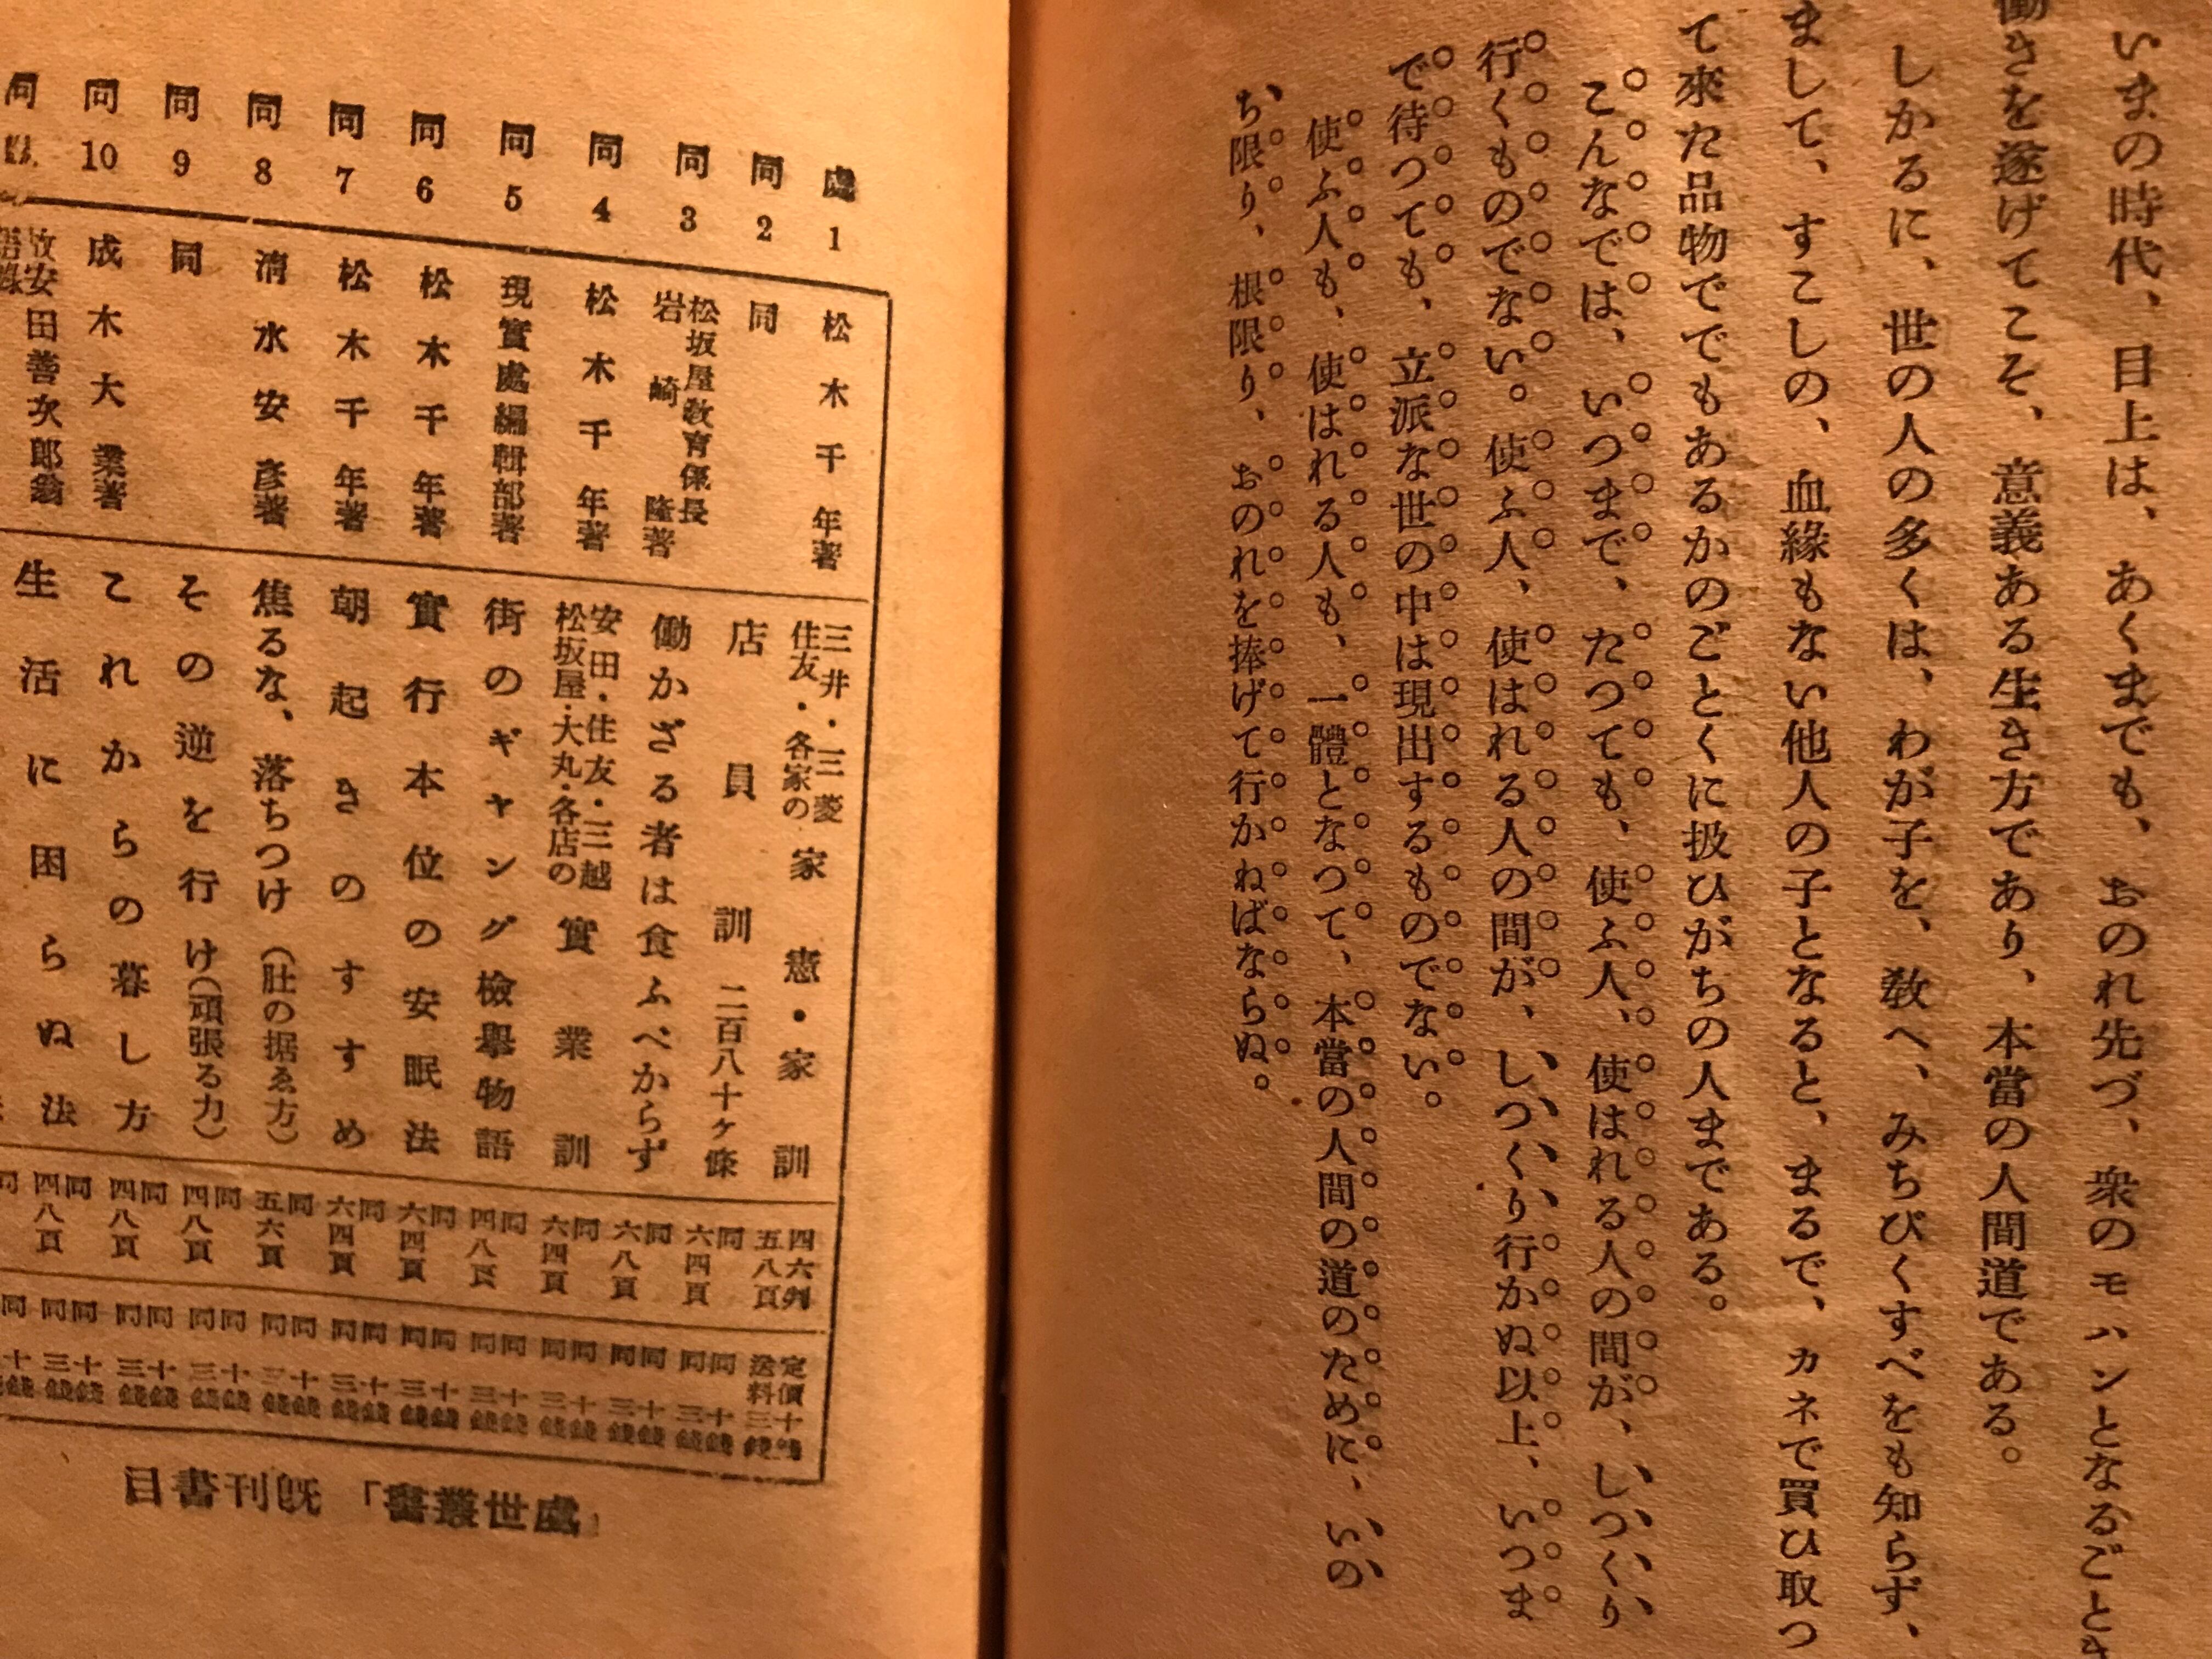 いまの時代、目上は、あくまでも、おのれ先づ、衆のモハンとなるごとき
働きを遂げてこそ、意義ある生き方であり、本當の人間道である。
しかるに、世の人の多くは、わが子を、敎へ、みちびくすべをも知らず、
まして、すこしの、血緣もない他人の子となると、まるで、カネで買ひ取つ
て來た品物ででもあるかのごとくに扱ひがちの人まである。
こんなでは、いつまで、たつても、使ふ人、使はれる人の間が、しつくり
行くものでない。使ふ人、使はれる人の間が、しつくり行かぬ以上、いつま
で待つても、立派な世の中は現出するものでない。
使ふ人も、使はれる人も、一體となつて、本當の人間の道のために、いの
ち限り、根限り、おのれを捧げて行かねばならぬ。
處1 松木千年著 三井・三菱住友・各家の家憲・家訓 四六判五八頁 定價十錢送料三錢
同2 同 店員訓二百八十ケ條 同六四頁 同十錢同三錢
同3 松坂屋敎育係長岩崎隆著 働かざる者は食ふべからず 同六八頁 同十錢同三錢
同4 松木千年著 安田・住友・三越松坂屋・大丸・各店の實業訓 同六四頁 同十錢同三錢
同5 現實處編輯部著 街のギャング檢擧物語 同四八頁 同十錢同三錢
同6 松木千年著 實行本位の安眠法 同六四頁 同十錢同三錢
同7 松木千年著 朝起きのすすめ 同六四頁 同十錢同三錢
同8 淸水安彥著 焦るな、落ちつけ(肚の据ゑ方) 同五六頁 同十錢同三錢
同9 同 その逆を行け(頑張る力) 同四八頁 同十錢同三錢
同10 成木大業著 これからの暮し方 同四八頁 同十錢同三錢
同 故安田善次郎翁語錄 生活に困らぬ法 同四八頁 同十錢同三錢
目書刊既「書叢世處」